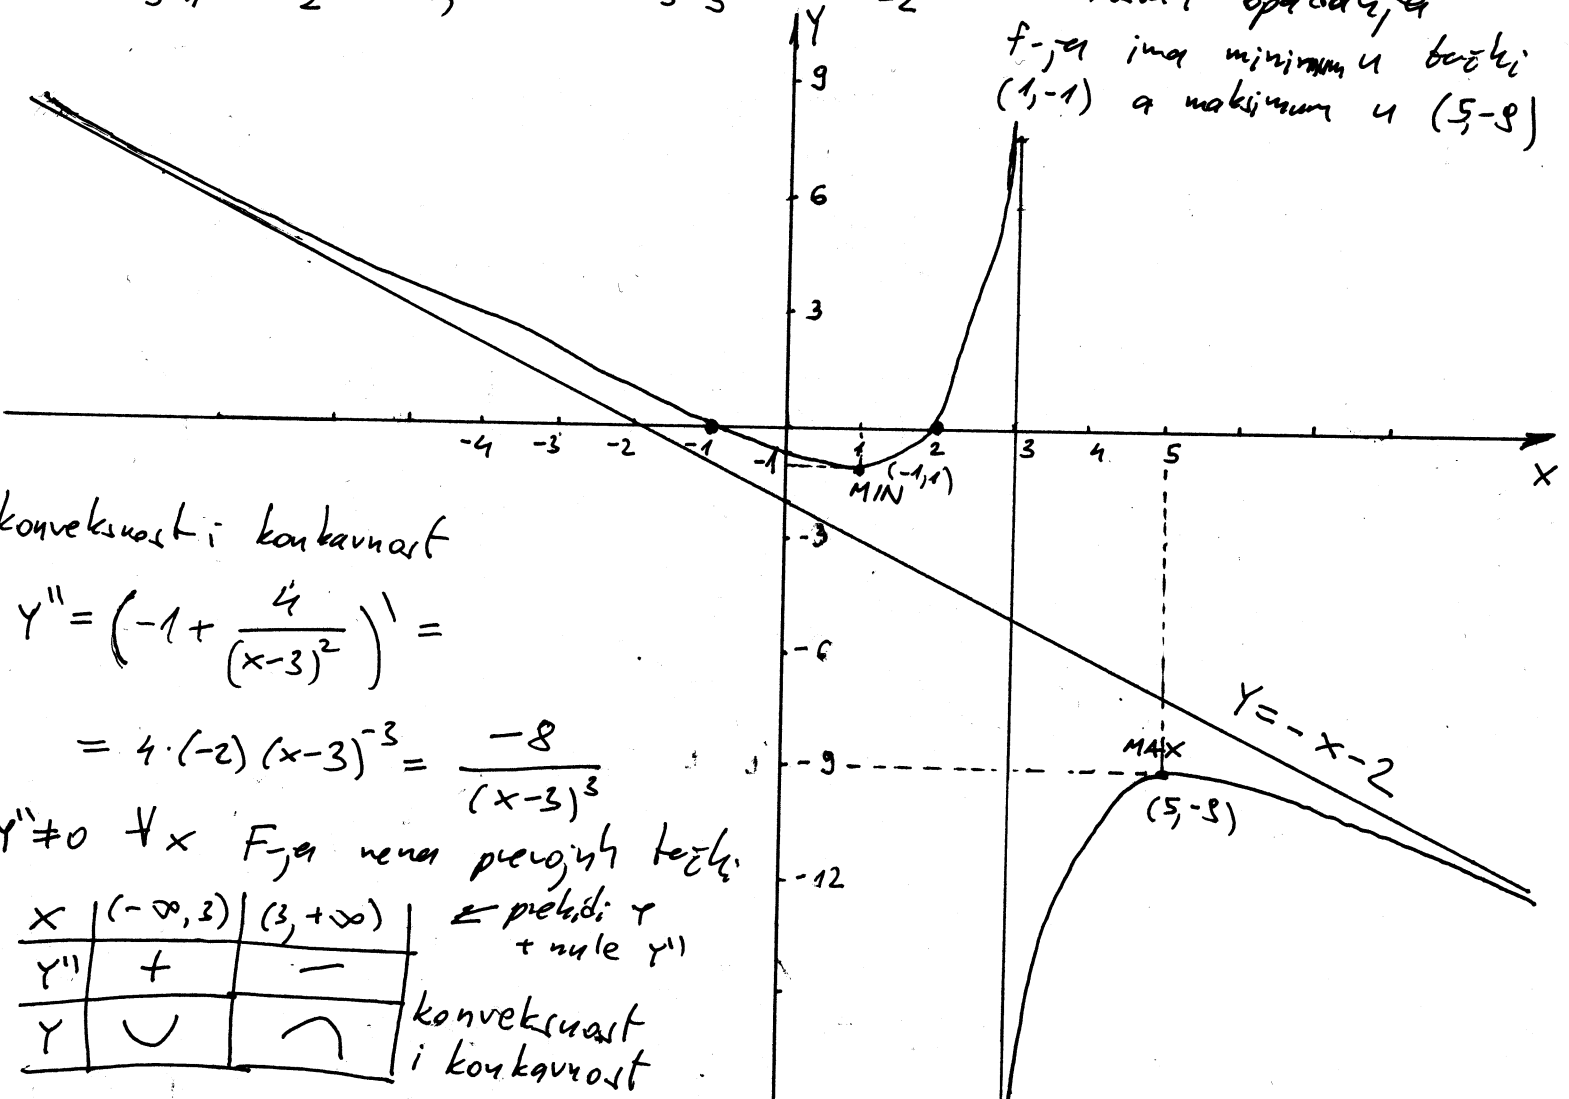 Y
f-ja ima minimum u tački
(1,-1) a maksimum u (5,-9)
9
6
3
-4 -3 -2 -1 1 2 3 4 5
X
-1
MIN (-1,1)
-3
-6
-9
-12
MAX
(5,-9)
Y=-x-2
konveksnost i konkavnost
Y'' = (-1 + 4/(x-3)²)' =
= 4·(-2)(x-3)⁻³ = -8/(x-3)³
Y''≠0 ∀x F-ja nema prevojnih tački
X | (-∞,3) | (3,+∞) | ← prekidi Y
+ nule Y''
Y'' | + | -
Y | ∪ | ∩
konveksnost
i konkavnost